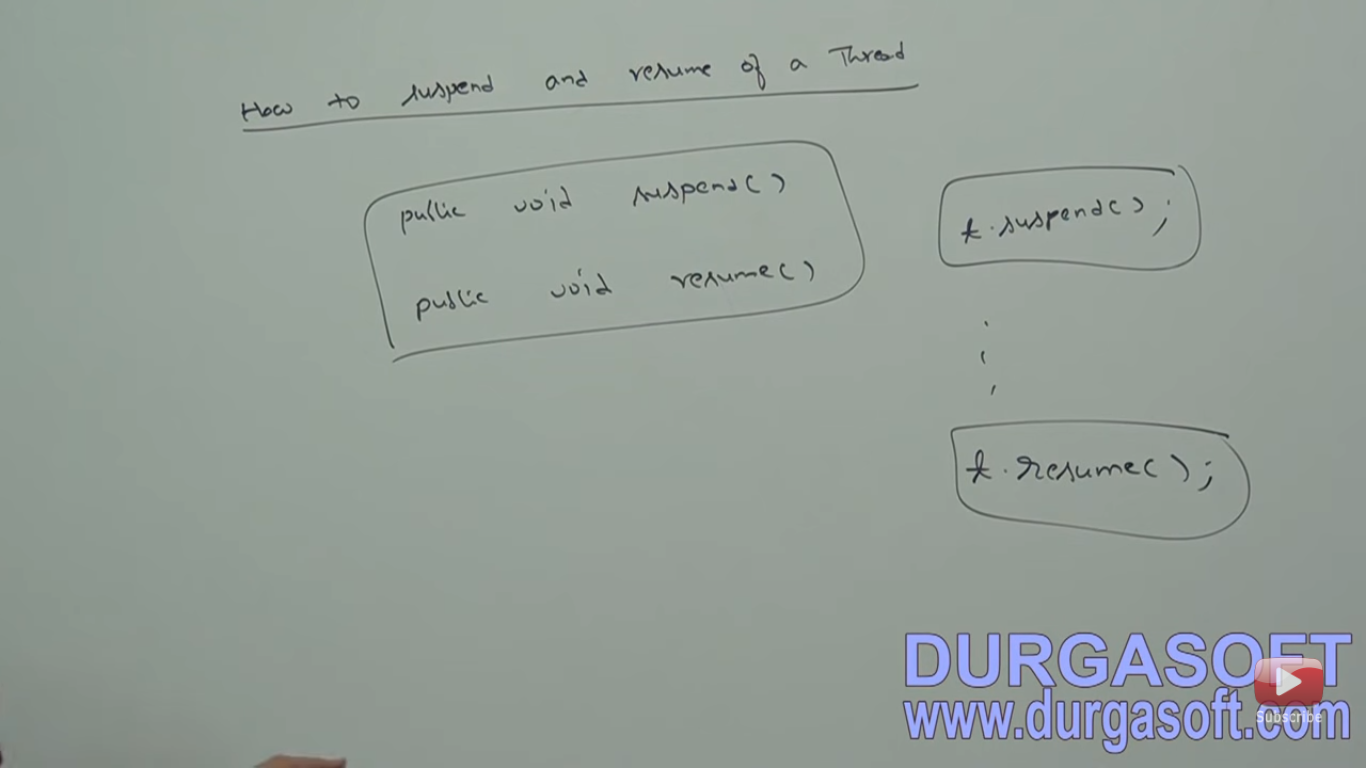 How to suspend and resume of a Thread
public void suspend()
public void resume()
t.suspend();
t.resume();
DURGASOFT
www.durgasoft.com
Subscribe